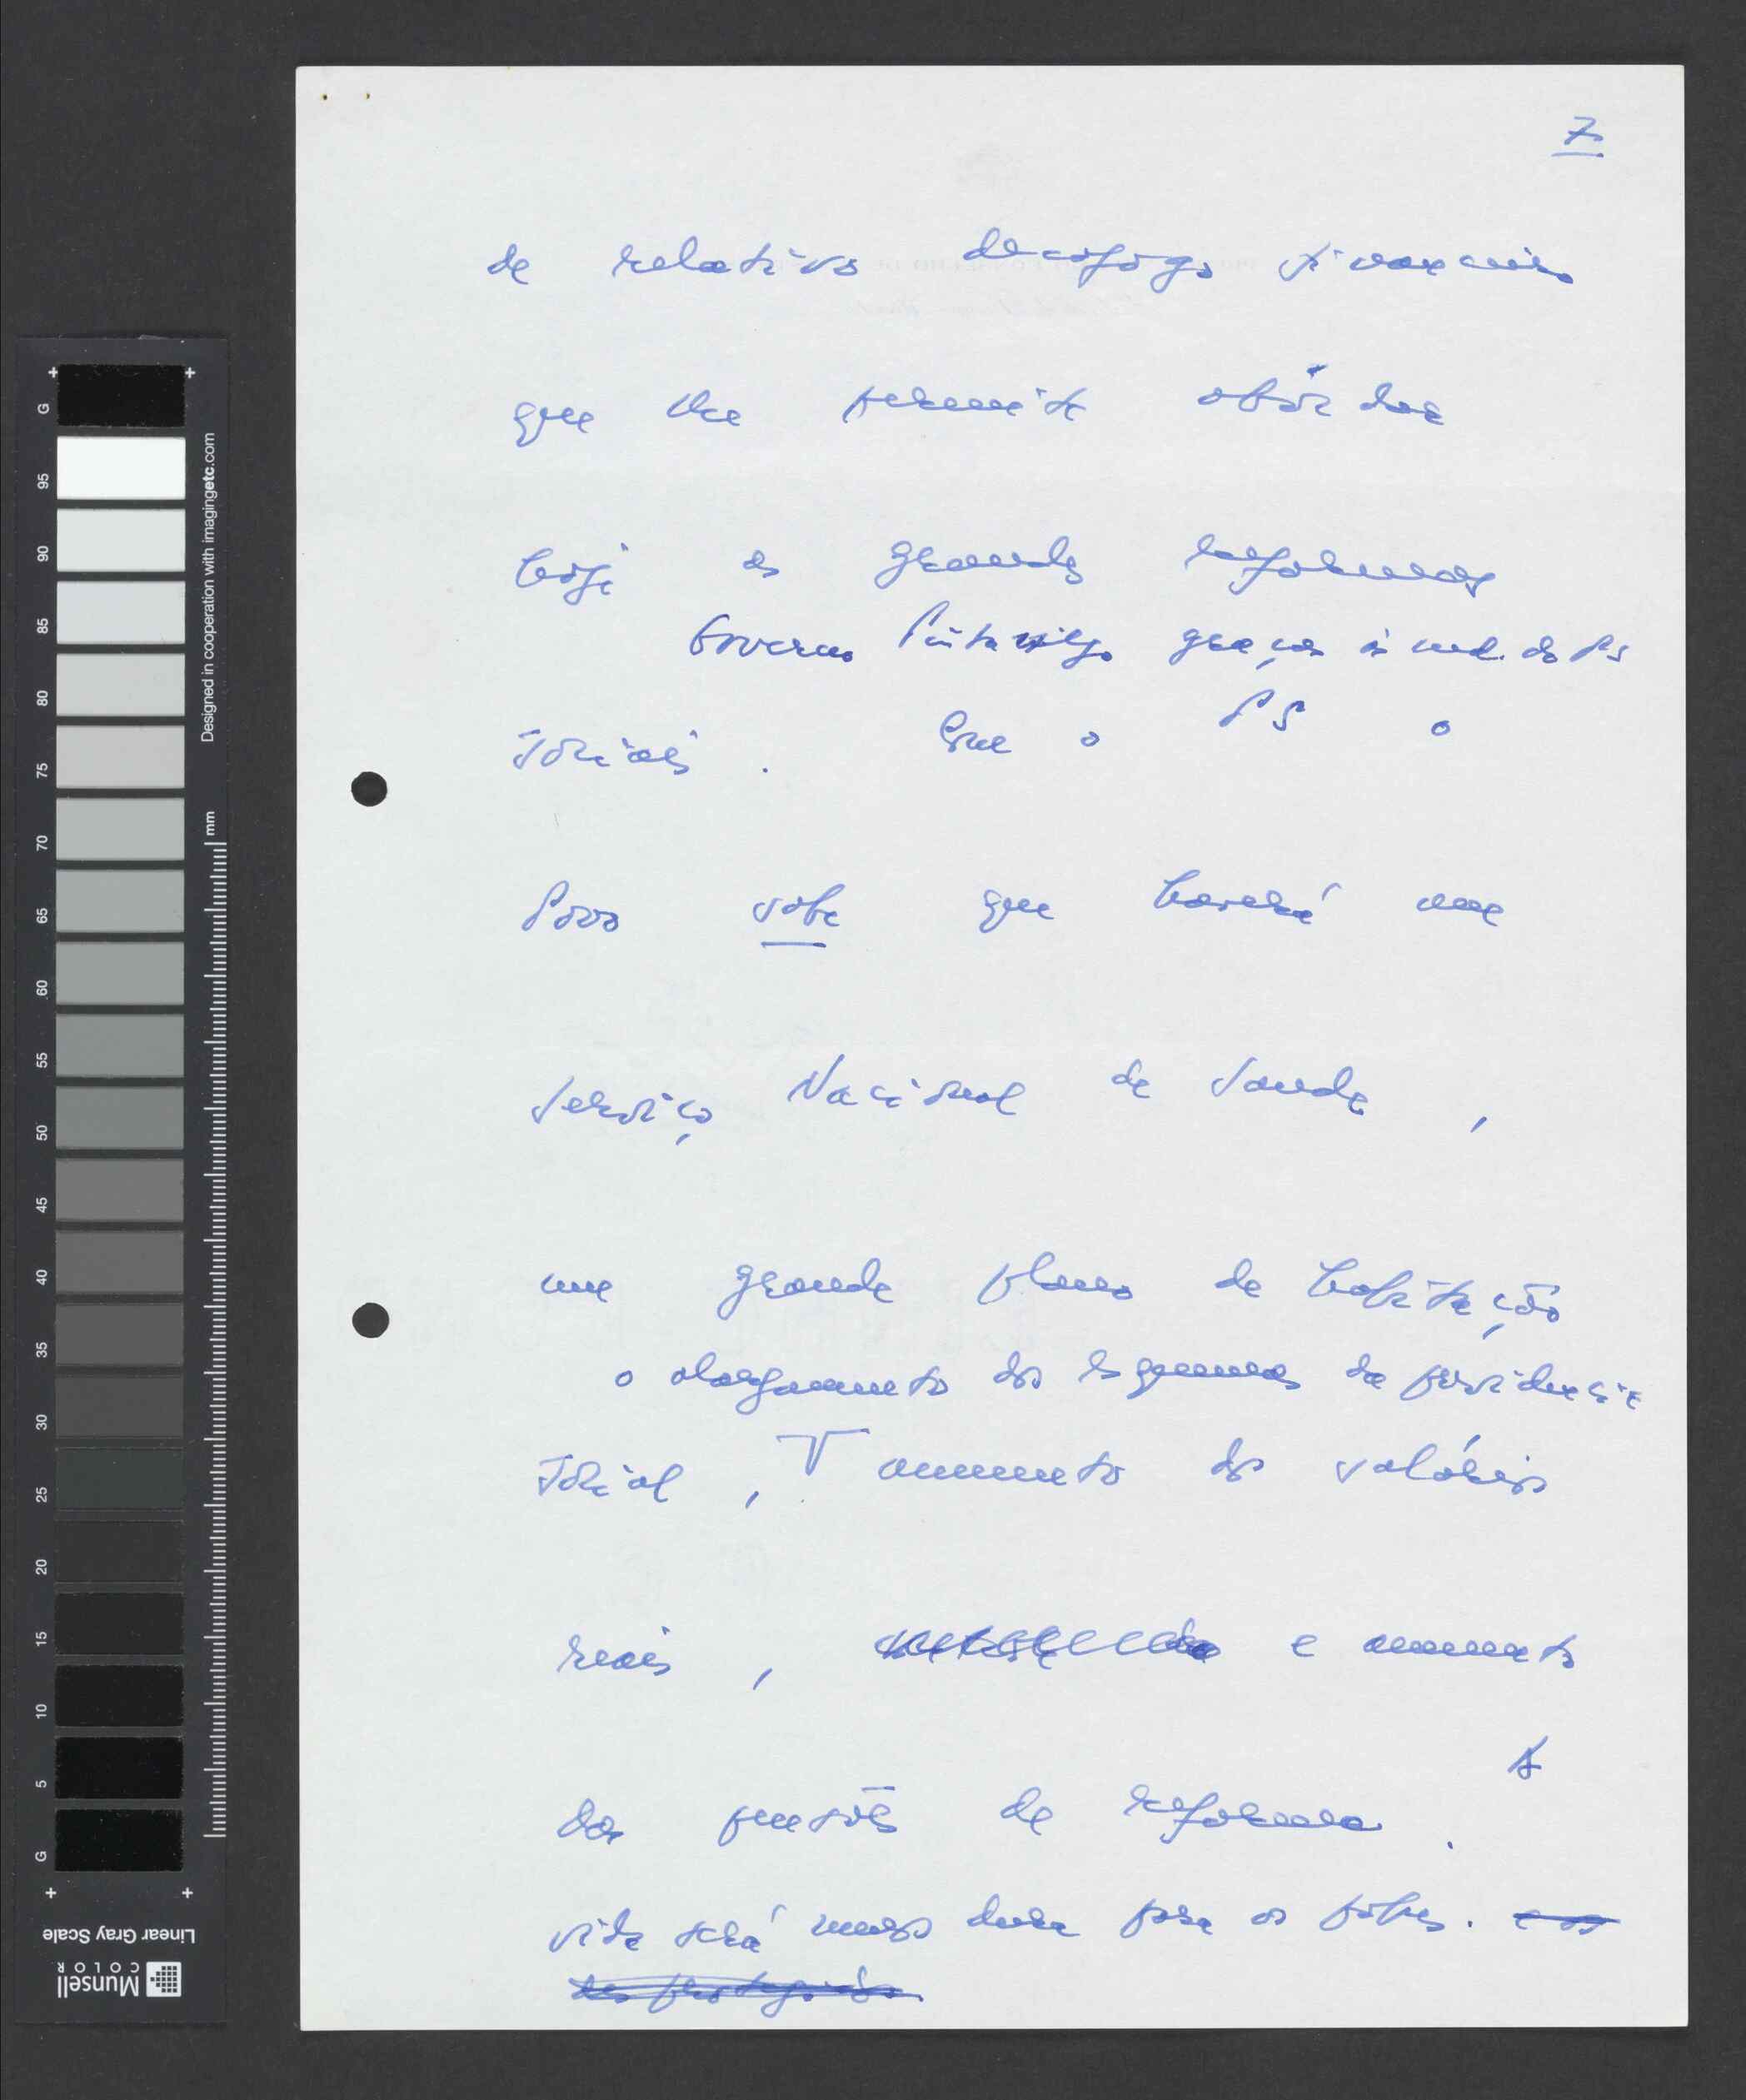 7
de relativo desafogo financeiro
que lhe permite abordar
hoje as grandes reformas
Governo graças à do PS
sociais. Que o PS o
Povo sabe que haverá um
Serviço Nacional de Saude,
um grande plano de habitação
o alargamento dos esquemas da previdencia
social, aumento dos salários
reais, e aumento
das pensões de reforma. A
vida será menos dura para os pobres. e os
desprotegidos.
G
95
90
85
80
75
70
65
60
55
50
45
40
35
30
25
20
15
10
5
G
mm
Designed in cooperation with imagingetc.com
Linear Gray Scale
Munsell
COLOR